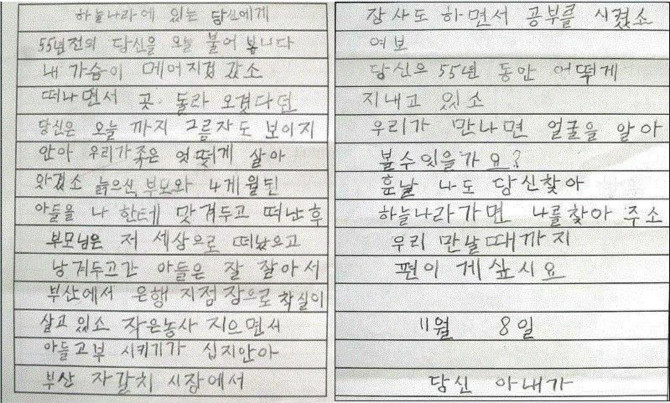 하늘나라에 있는 당신에게
55년전의 당신을 오늘 불어 봅니다
내 가슴이 메어지겄 갔소
떠나면서 곳. 돌라 오겠다던
당신은 오늘 까지 그름자도 보이지
안아 우리가죽은 엇떳게 살아
왓겠소 늙으신 부모와 4게월된
아들을 나 한테 맞겨두고 떠난후
부모님은 저 세상으로 떠났으고
낭겨두고간 아들은 잘 잘아서
부산에서 은행 지점장으로 착실이
살고 있소 작은농사 지으면서
아들고부 시키기가 십지안아
부산 자갈치 시장에서
장사도 하면서 공부를 시켰소
여보
당신으 55년 동안 어떻게
지내고 있소
우리가 만나면 얼굴을 알아
볼수있을가요?
훈날 나도 당신찾아
하늘나라가면 나를찾아 주소
우리 만날때까지
편이 게싶시요
11월 8일
당신 아내가